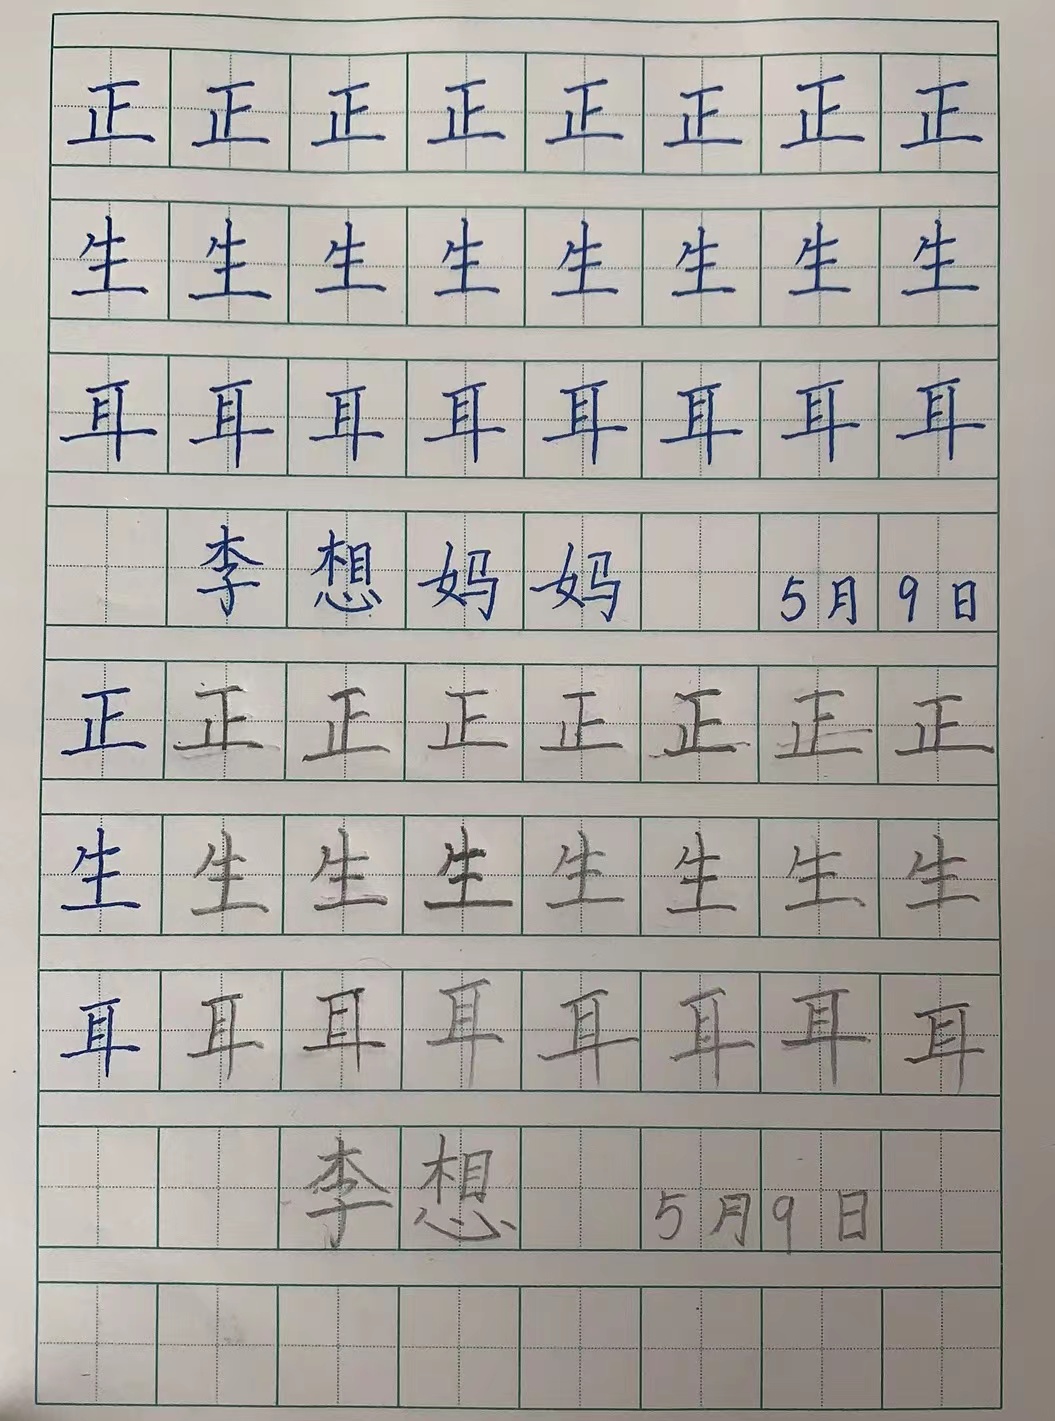 正 正 正 正 正 正 正 正
生 生 生 生 生 生 生 生
耳 耳 耳 耳 耳 耳 耳 耳
李 想 妈 妈 5 月 9 日
正 正 正 正 正 正 正 正
生 生 生 生 生 生 生 生
耳 耳 耳 耳 耳 耳 耳 耳
李 想 5 月 9 日